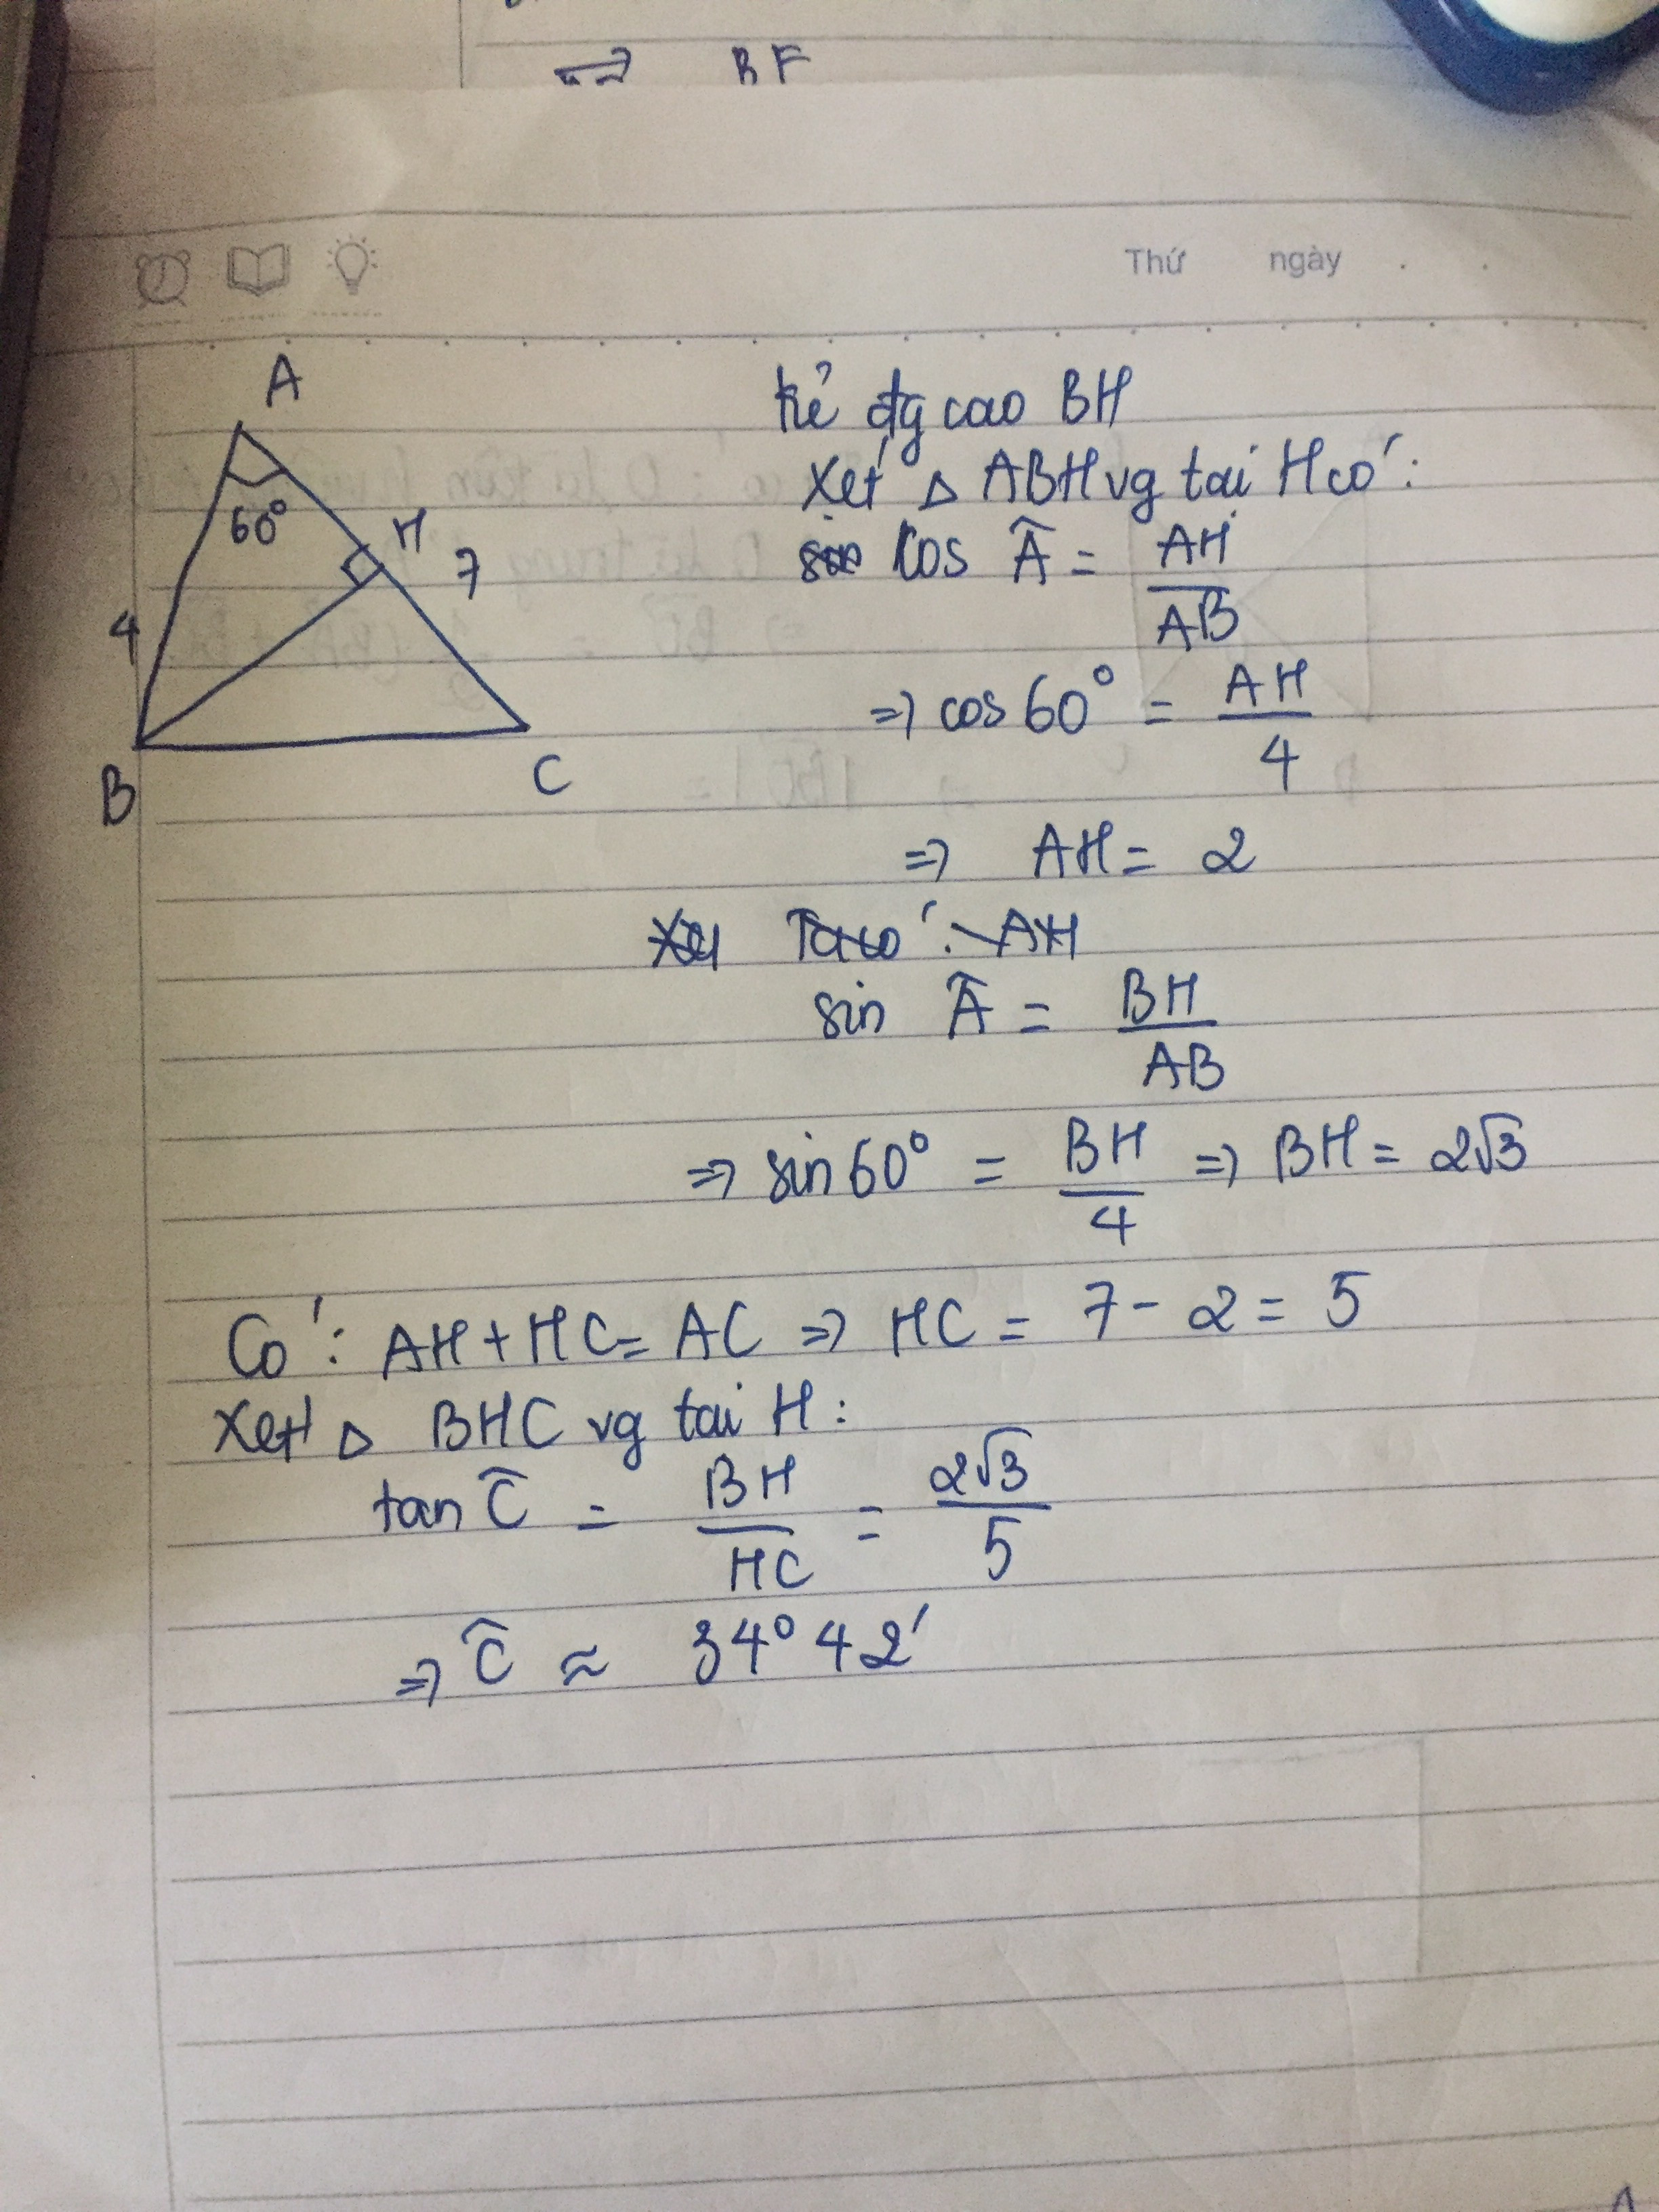 ⇒ BF
Thứ ngày . .
A
60°
H
7
4
B
C
Kẻ đg cao BH
Xét △ ABH vg tại H có:
cos Â = AH/AB
⇒ cos 60° = AH/4
⇒ AH = 2
Ta có: AH
sin Â = BH/AB
⇒ sin 60° = BH/4 ⇒ BH = 2√3
Có: AH + HC = AC ⇒ HC = 7 - 2 = 5
Xét △ BHC vg tại H:
tan Ĉ = BH/HC = 2√3/5
⇒ Ĉ ≈ 34°42'